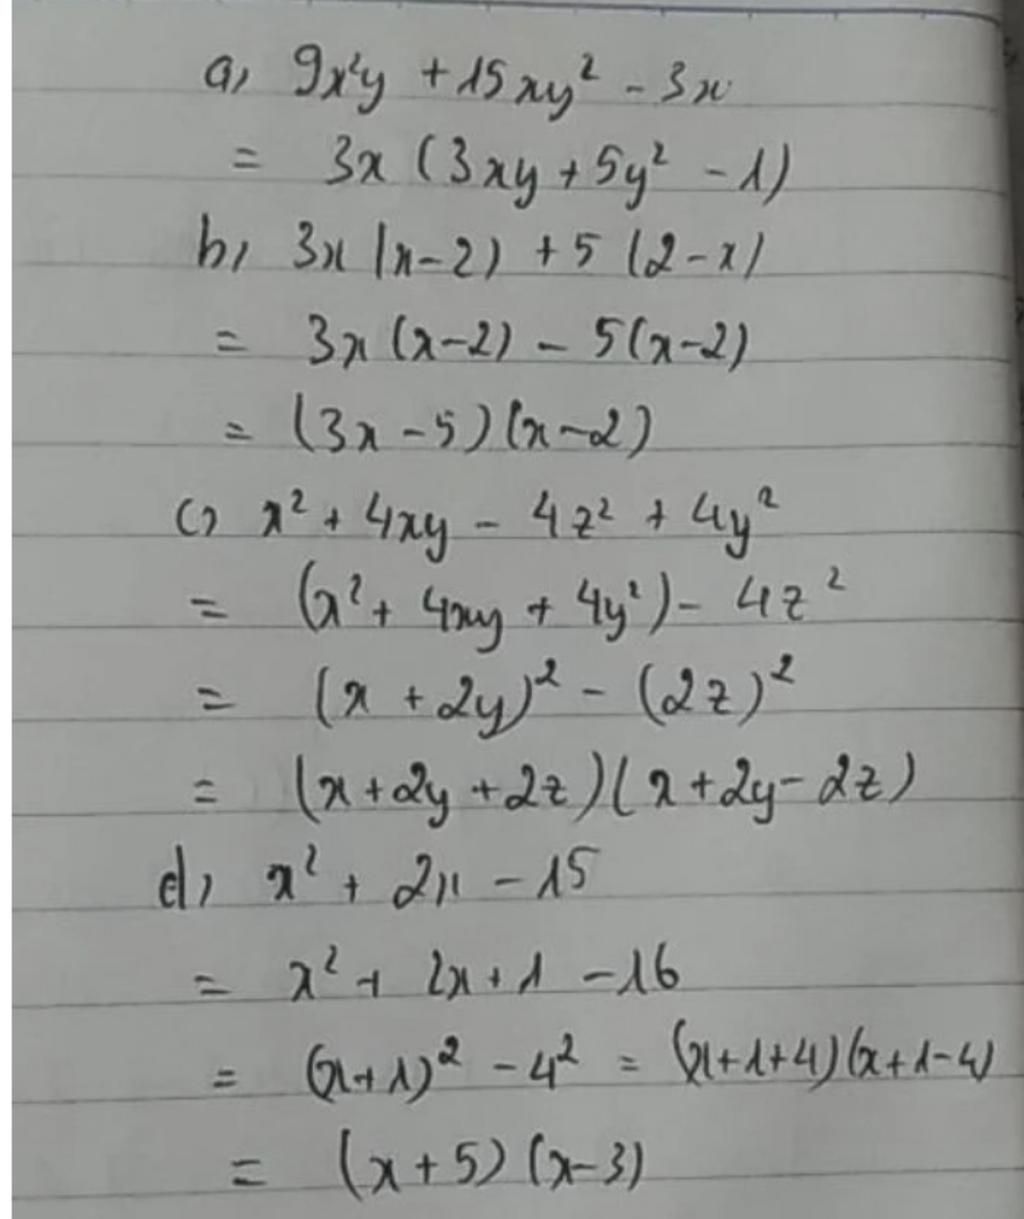 a, 9x²y + 15xy² - 3x
= 3x (3xy + 5y² - 1)
b, 3x (x-2) + 5 (2-x)
= 3x (x-2) - 5(x-2)
= (3x - 5) (x-2)
c, x² + 4xy - 4z² + 4y²
= (x² + 4xy + 4y²) - 4z²
= (x + 2y)² - (2z)²
= (x+2y+2z)(x+2y-2z)
d, x² + 2x - 15
= x² + 2x + 1 - 16
= (x+1)² - 4² = (x+1+4)(x+1-4)
= (x+5) (x-3)